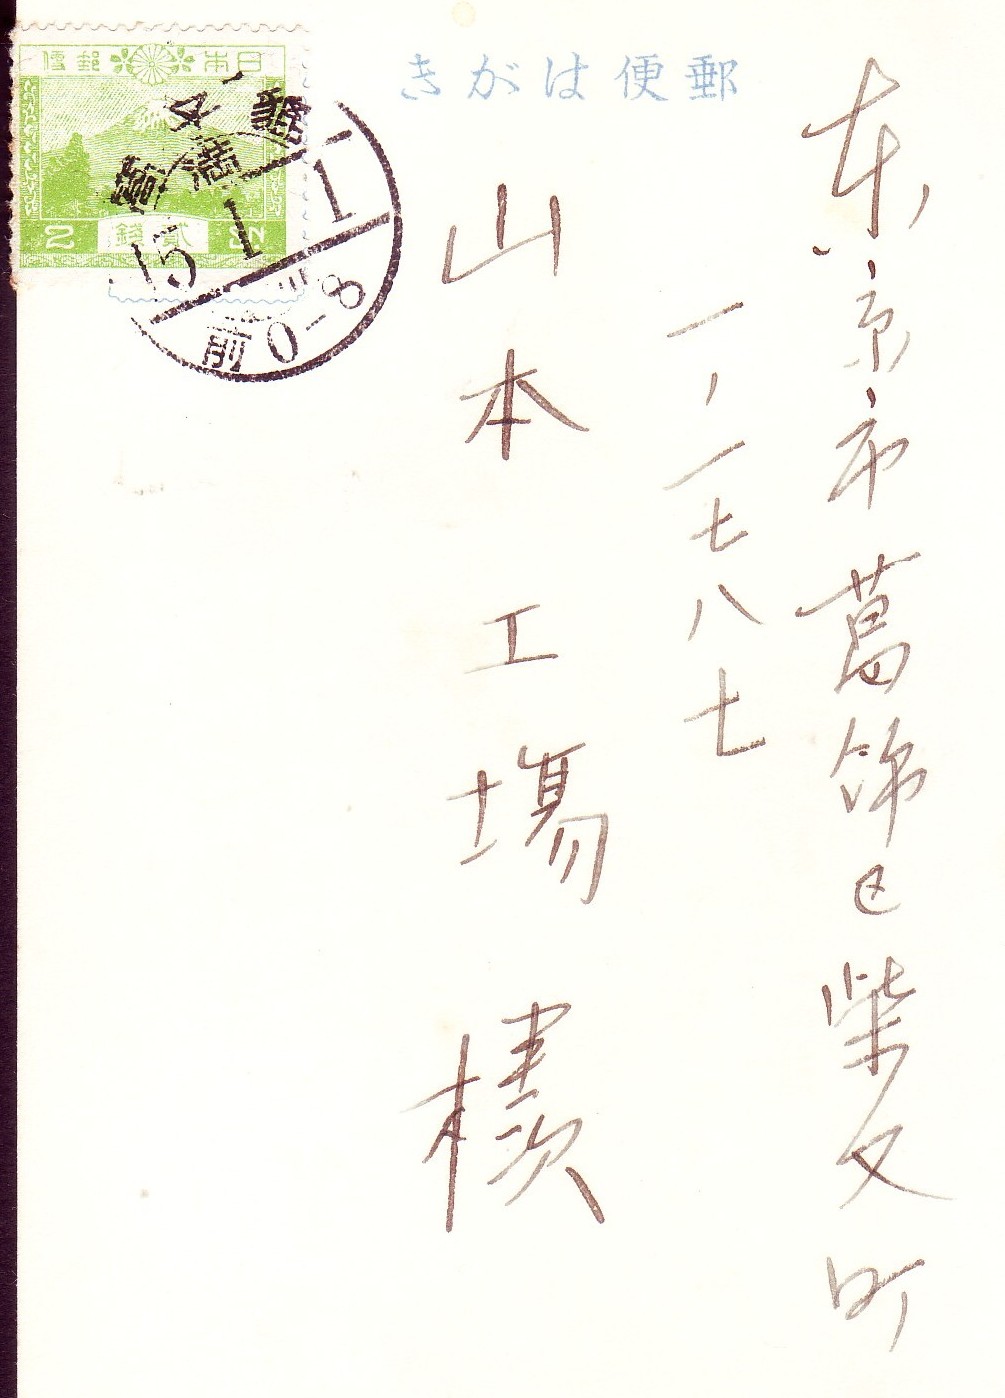 郵便はがき
東京市葛飾区柴又町
一ノ一七八七
山本工場様
日本郵便
2 貳錢 SN
15.1.1
前0-8